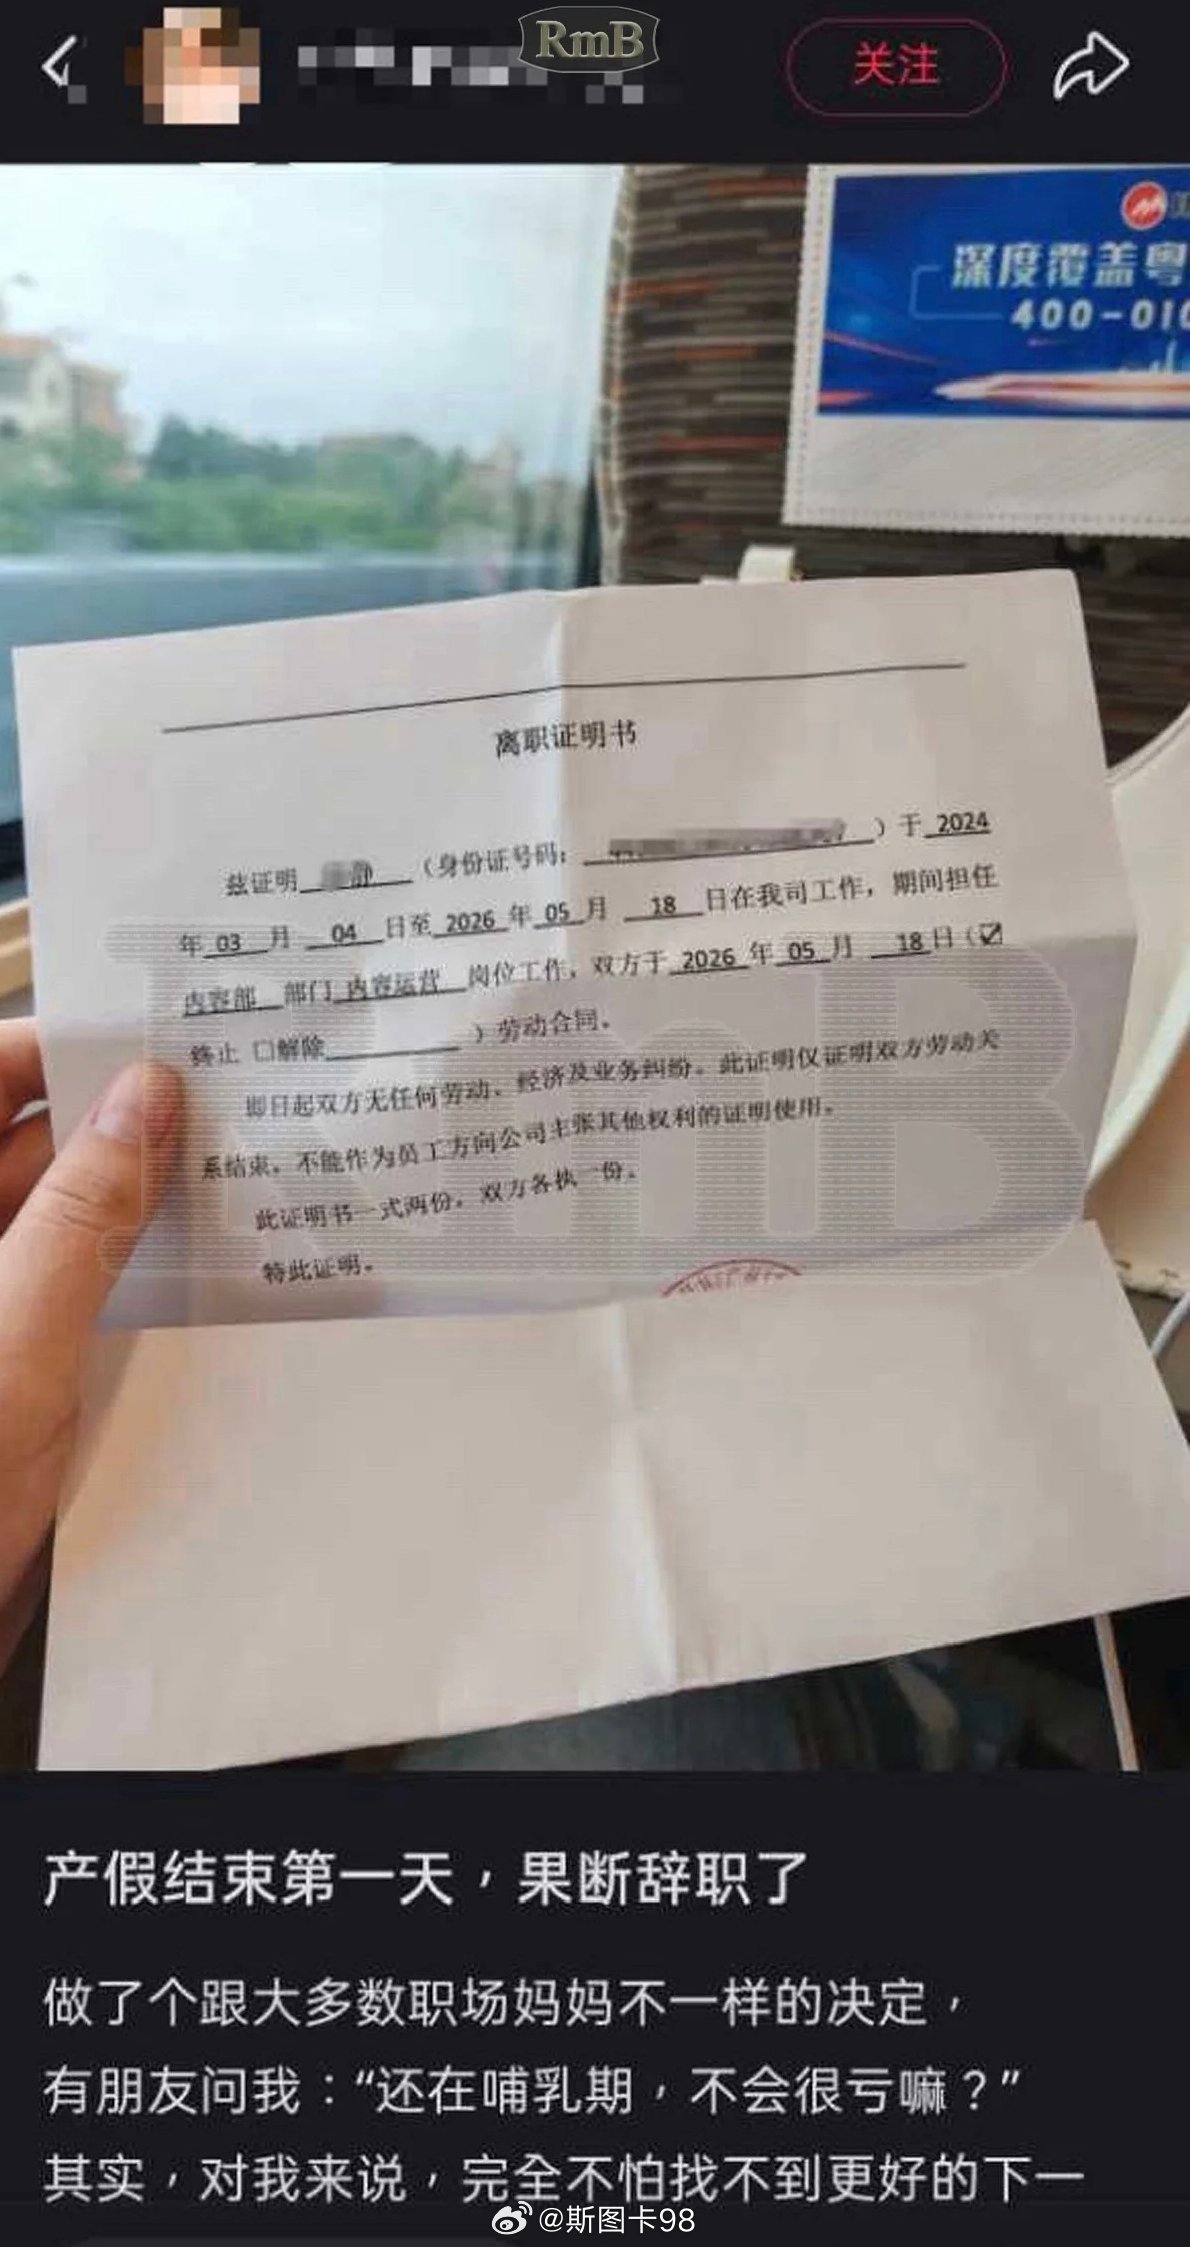 RmB
关注
深度覆盖粤
400-010
离职证明书
兹证明 静 （身份证号码： ）于 2024
年 03 月 04 日至 2026 年 05 月 18 日在我司工作，期间担任
内容部 部门 内容运营 岗位工作，双方于 2026 年 05 月 18 日（☑
终止 □解除 ）劳动合同。
即日起双方无任何劳动、经济及业务纠纷。此证明仅证明双方劳动关
系结束，不能作为员工方向公司主张其他权利的证明使用。
此证明书一式两份，双方各执一份。
特此证明。
RmB
产假结束第一天，果断辞职了
做了个跟大多数职场妈妈不一样的决定，
有朋友问我：“还在哺乳期，不会很亏嘛？”
其实，对我来说，完全不怕找不到更好的下一
@斯图卡98